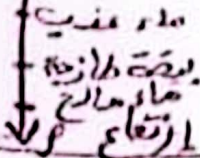 ماء عذب
بيضة طازجة
ماء مالح
ارتفاع